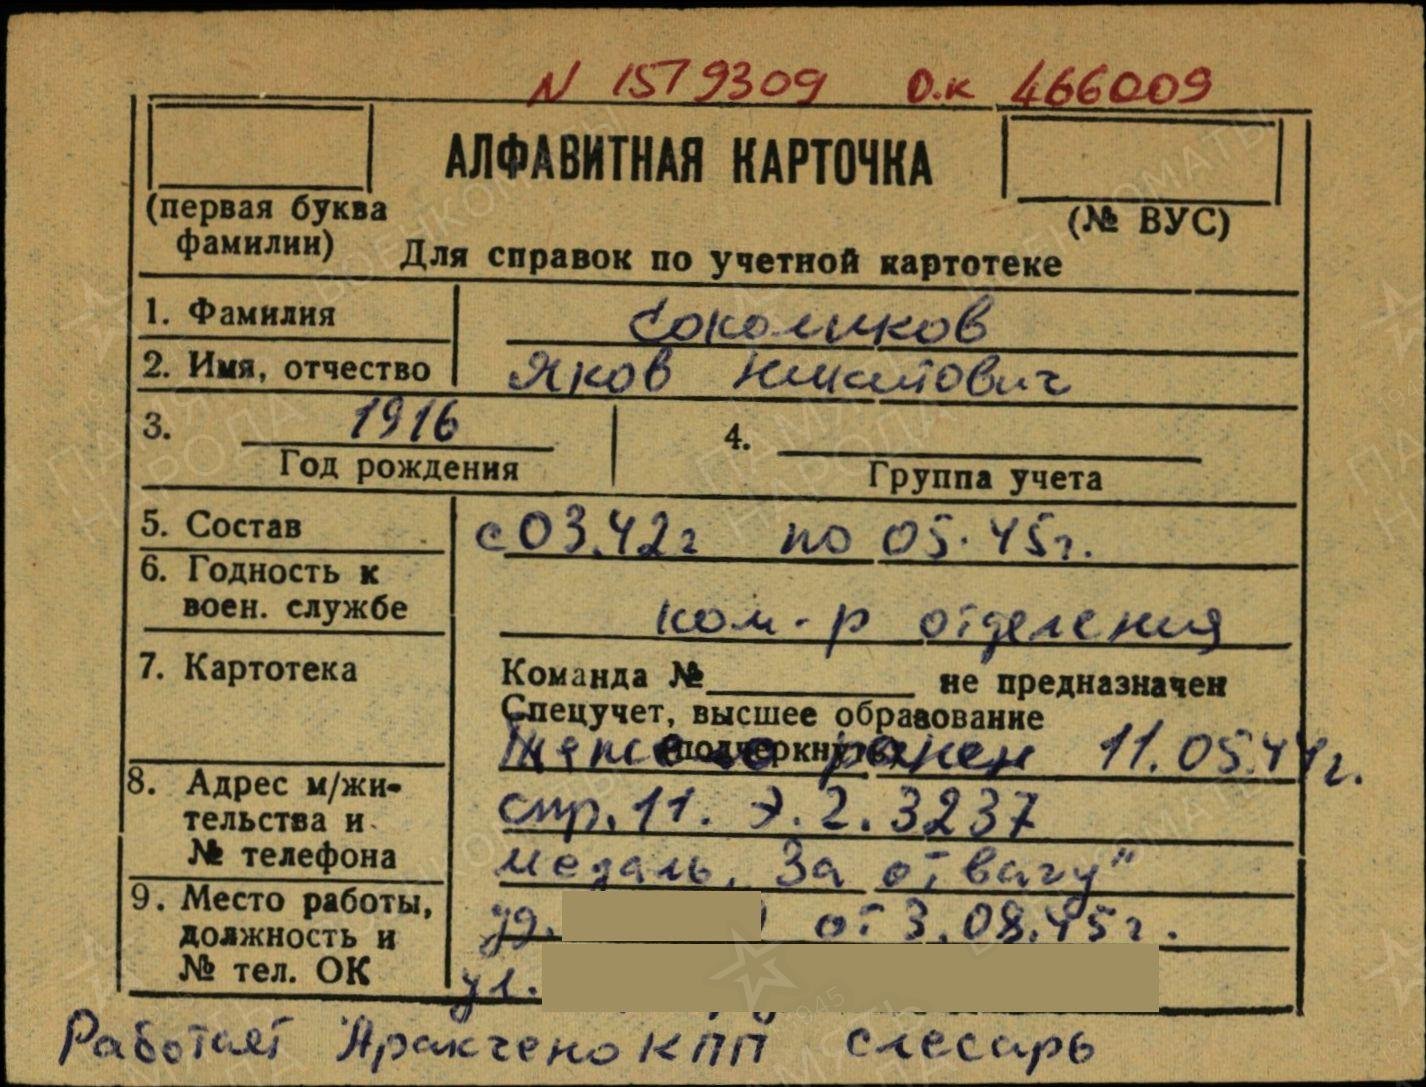 N 1579309 О.к 466009
АЛФАВИТНАЯ КАРТОЧКА
(первая буква фамилии)
(№ ВУС)
Для справок по учетной картотеке
1. Фамилия Соколиков
2. Имя, отчество Яков Никитович
3. 1916
Год рождения
4.
Группа учета
5. Состав с 03.42г по 05.45г.
6. Годность к
воен. службе ком-р отделения
7. Картотека
Команда № не предназначен
Спецучет, высшее образование
(подчеркнуть)
Тяжело ранен 11.05.44г.
8. Адрес м/жи-
тельства и
№ телефона
стр. 11. Э.г. 3237
медаль „За отвагу"
9. Место работы,
должность и
№ тел. ОК
уд. от 3.08.45г.
ул.
Работает Аракчено КПП слесарь
ПАМЯТЬ НАРОДА
ВОЕНКОМАТЫ